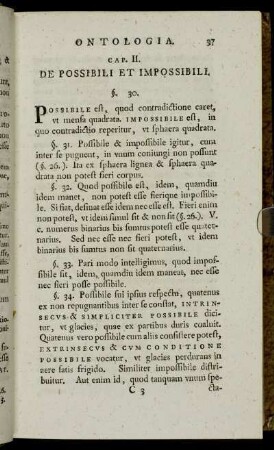 ONTOLOGIA. 37
CAP. II.
DE POSSIBILI ET IMPOSSIBILI.
§. 30.
POSSIBILE est, quod contradictione caret,
vt mensa quadrata. IMPOSSIBILE est, in
quo contradictio reperitur, vt sphaera quadrata.
§. 31. Possibile & impossibile igitur, cum
inter se pugnent, in vnum coniungi non possunt
(§. 26.). Ita ex sphaera lignea & sphaera qua-
drata non potest fieri corpus.
§. 32. Quod possibile est, idem, quamdiu
idem manet, non potest esse fierique impossibi-
le. Si fiat, desinat esse idem nec esse est. Fieri enim
non potest, vt idem simul sit & non sit (§. 26.). V.
c. numerus binarius bis sumtus potest esse quater-
narius. Sed nec esse nec fieri potest, vt idem
binarius bis sumtus non sit quaternarius.
§. 33. Pari modo intelligimus, quod impos-
sibile sit, idem, quamdiu idem maneat, nec esse
nec fieri posse possibile.
§. 34. Possibile sui ipsius respectu, quatenus
ex non repugnantibus inter se constat, INTRIN-
SECVS & SIMPLICITER POSSIBILE dici-
tur, vt glacies, quae ex partibus duris coaluit.
Quatenus vero possibile cum aliis consistere potest,
EXTRINSECVS & CVM CONDITIONE
POSSIBILE vocatur, vt glacies perdurans in
aere satis frigido. Similiter impossibile distri-
buitur. Aut enim id, quod tanquam vnum spe-
C 3 cta-